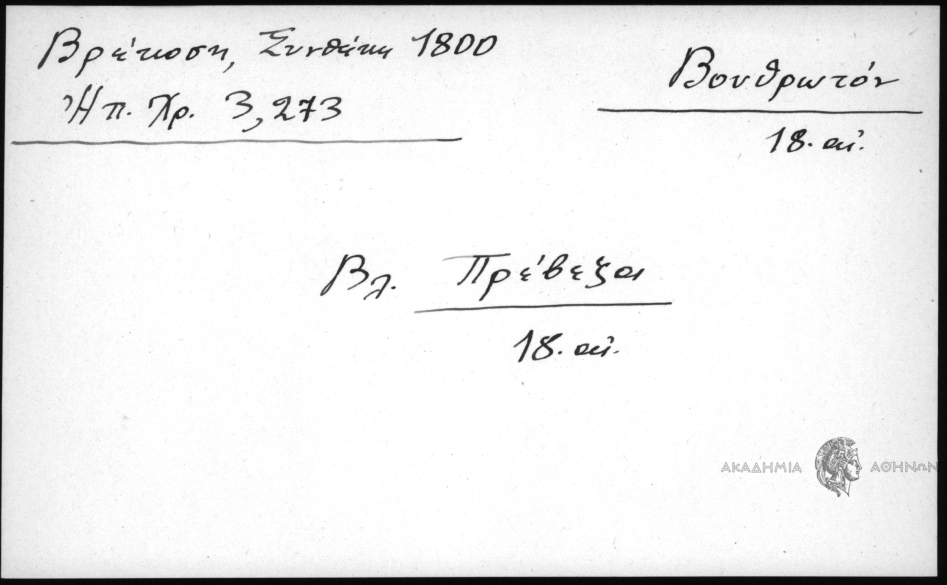 Βρέκοση, Συνθήκη 1800
Ἠπ. Χρ. 3,273
Βουθρωτόν
18. αἰ.
Βλ. Πρέβεζα
18. αἰ.
ΑΚΑΔΗΜΙΑ ΑΘΗΝΩΝ